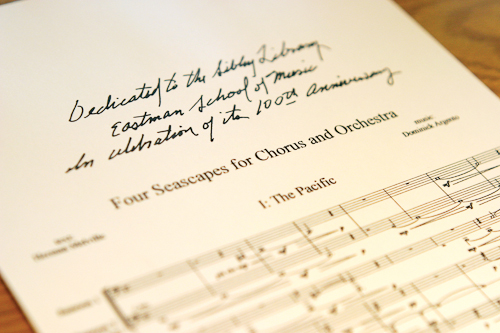 Dedicated to the Sibley Library
Eastman School of Music
In celebration of its 100th Anniversary
Four Seascapes for Chorus and Orchestra
MUSIC
Dominick Argento
I: The Pacific
Herman Melville